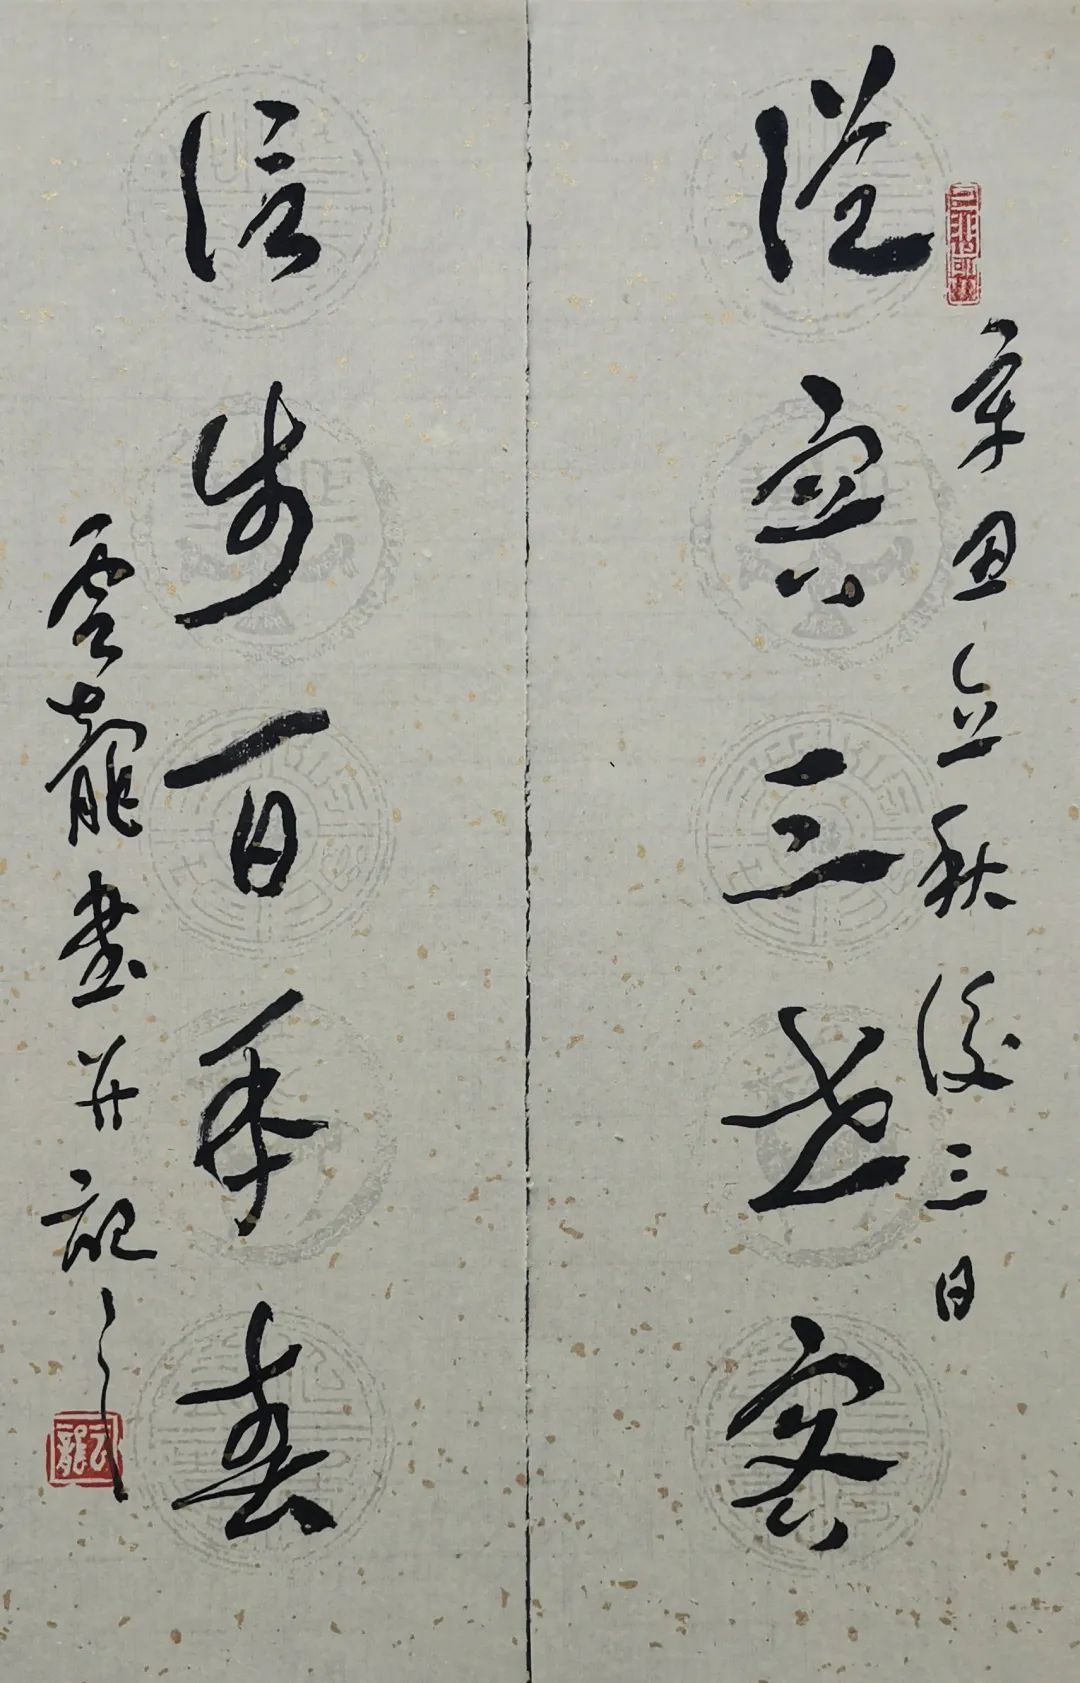 從三客
辛丑立秋後三日
信步百年春
雲龍書并記之
云龍